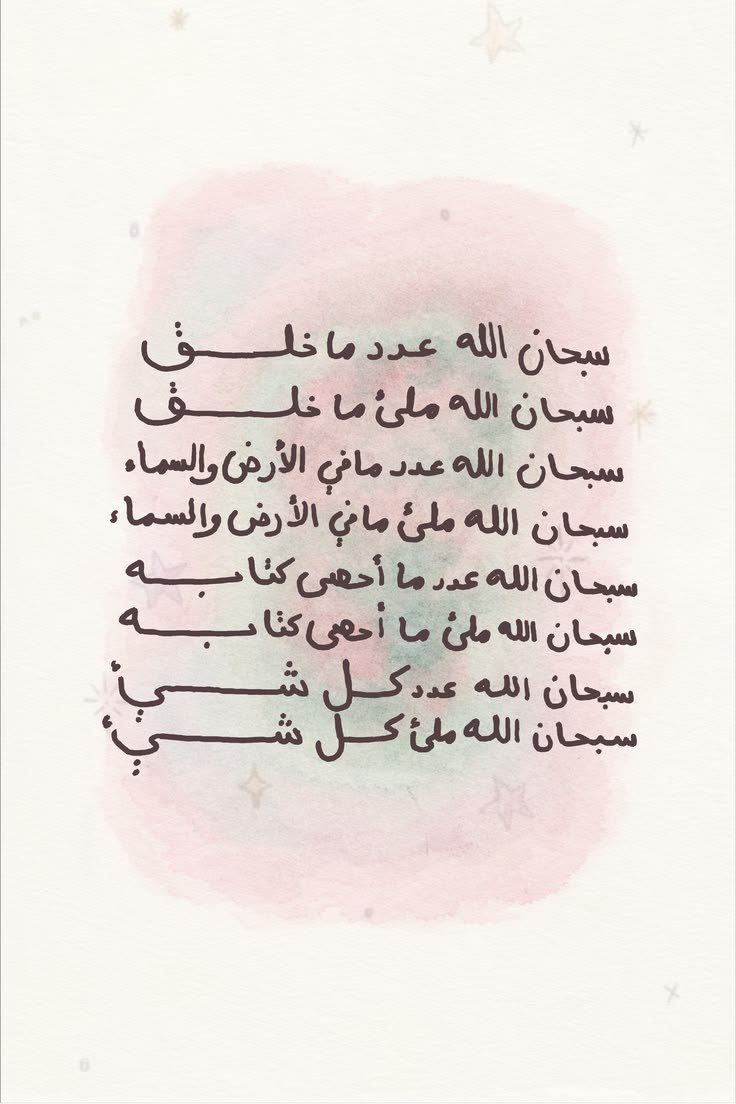 سبحان الله عدد ما خلق
سبحان الله ملئ ما خلق
سبحان الله عدد مافي الأرض والسماء
سبحان الله ملئ مافي الأرض والسماء
سبحان الله عدد ما أحصى كتابه
سبحان الله ملئ ما أحصى كتابه
سبحان الله عدد كل شيئ
سبحان الله ملئ كل شيئ